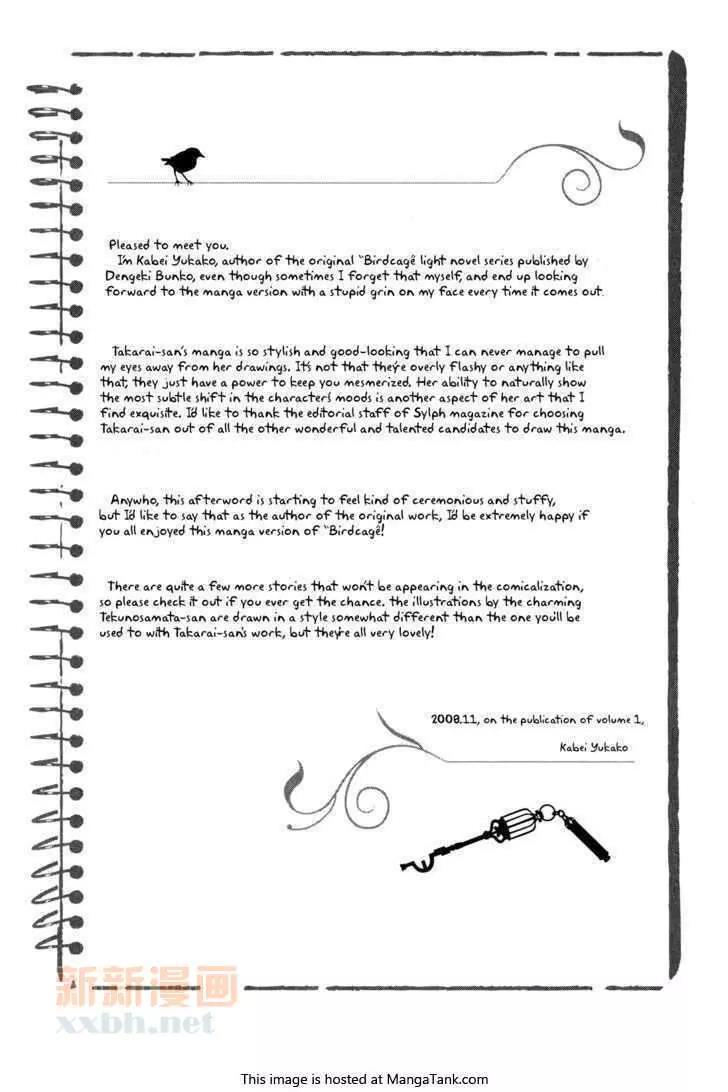 Pleased to meet you.
I'm Kabei Yukako, author of the original "Birdcage" light novel series published by
Dengeki Bunko, even though sometimes I forget that myself, and end up looking
forward to the manga version with a stupid grin on my face every time it comes out.
Takarai-san's manga is so stylish and good-looking that I can never manage to pull
my eyes away from her drawings. It's not that they're overly flashy or anything like
that, they just have a power to keep you mesmerized. Her ability to naturally show
the most subtle shift in the character's moods is another aspect of her art that I
find exquisite. I'd like to thank the editorial staff of Sylph magazine for choosing
Takarai-san out of all the other wonderful and talented candidates to draw this manga.
Anywho, this afterword is starting to feel kind of ceremonious and stuffy,
but I'd like to say that as the author of the original work, I'd be extremely happy if
you all enjoyed this manga version of "Birdcage"!
There are quite a few more stories that won't be appearing in the comicalization,
so please check it out if you ever get the chance. the illustrations by the charming
Tekunosamata-san are drawn in a style somewhat different than the one you'll be
used to with Takarai-san's work, but they're all very lovely!
2008.11, on the publication of volume 1,
Kabei Yukako
新新漫画
xxbh.net
This image is hosted at MangaTank.com